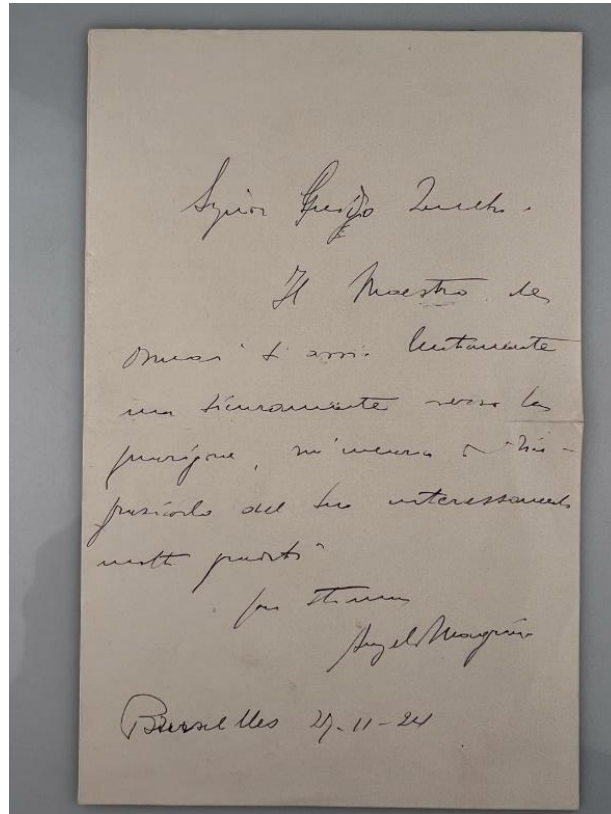 Signor
Il Maestro che
ormai si avvia lentamente
ma sicuramente verso la
guarigione, m'incarica di rin-
graziarlo del suo interessamento
molto gradito
con stima
Angelo Magrini
Bruxelles 27-11-24